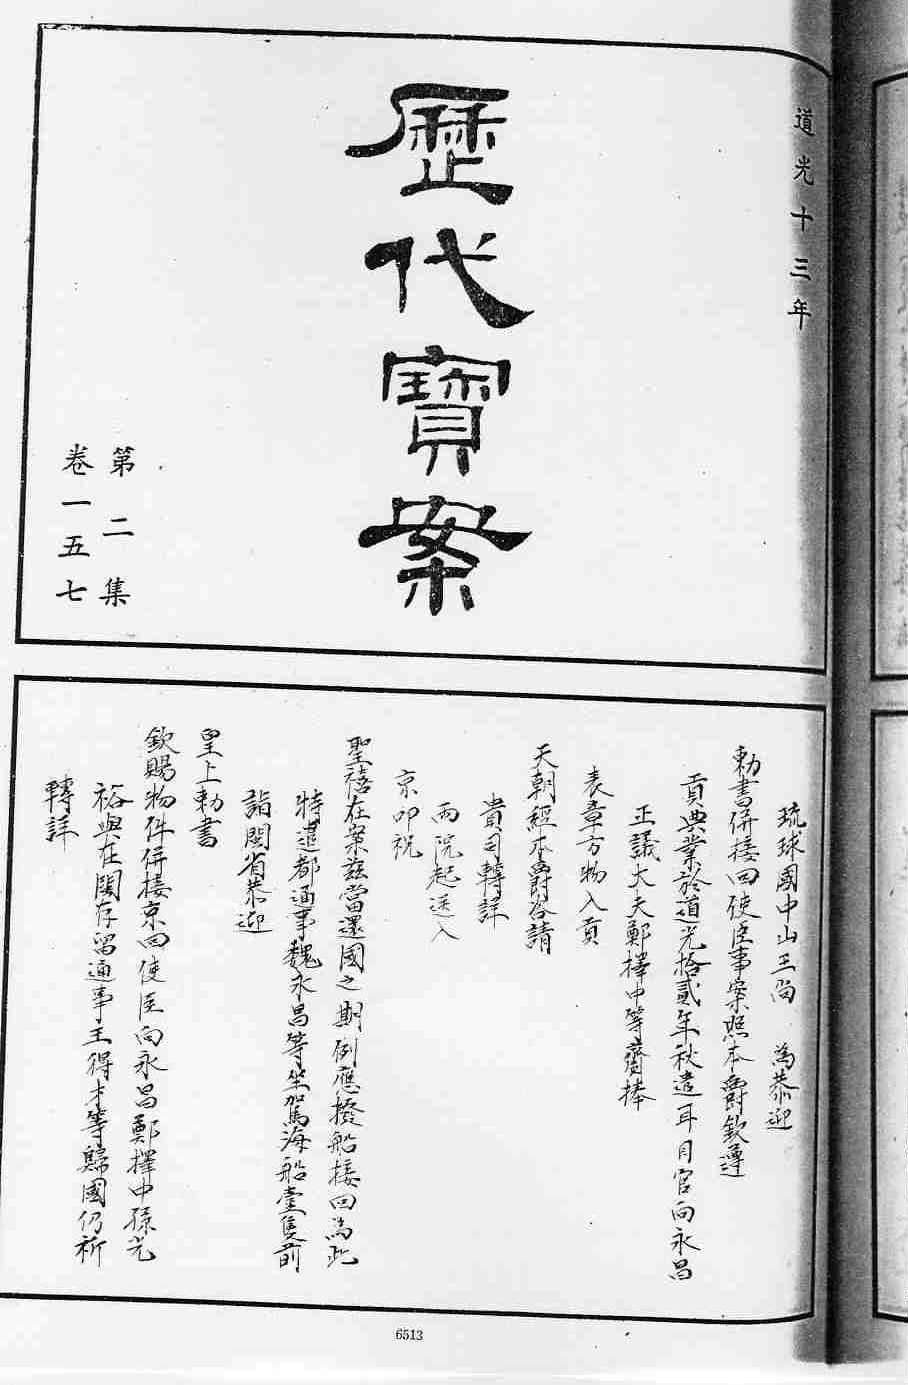 道光十三年
歷代寶案
第二集
卷一五七
琉球國中山王尚　為恭迎
勅書併接回使臣事案照本爵欽遵
貢典業於道光拾貳年秋遣耳目官向永昌
正議大夫鄭擇中等齎捧
表章方物入貢
天朝經本爵咨請
貴司轉詳
兩院起送入
京叩祝
聖禧在案茲當還國之期例應撥船接回為此
特遣都通事魏永昌等坐駕海船壹隻前
詣閩省恭迎
皇上勅書
欽賜物件併接京回使臣向永昌鄭擇中孫光
裕與在閩存留通事王得才等歸國仍祈
轉詳
6513